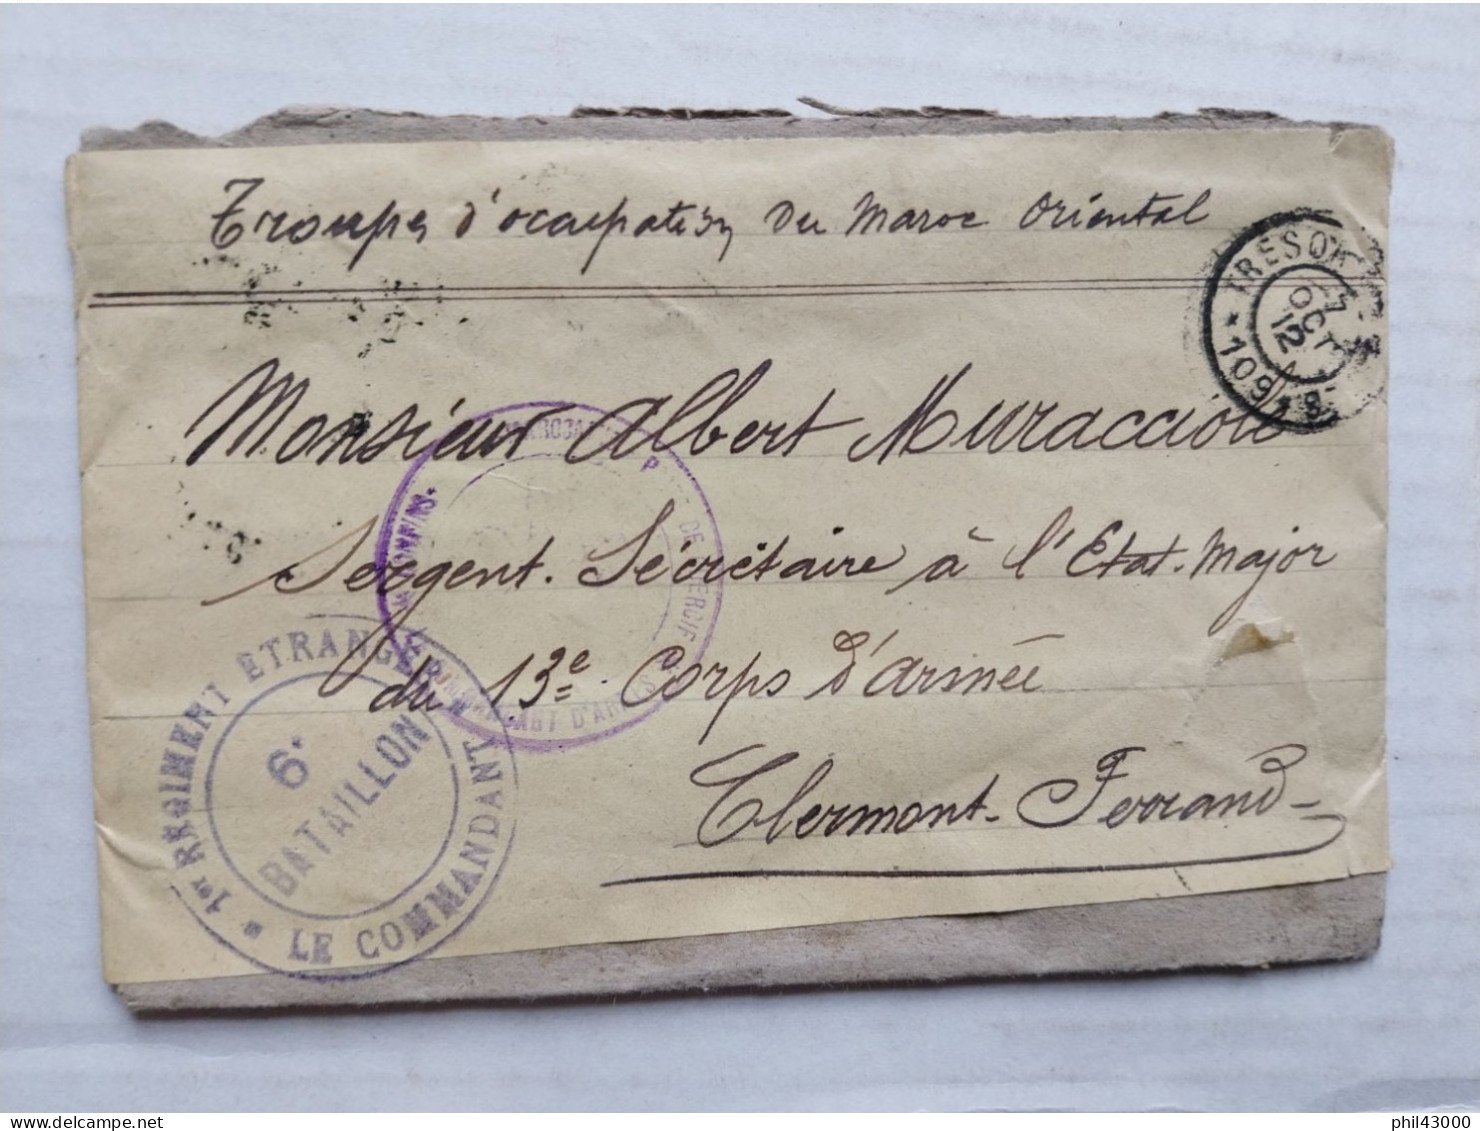 Troupes d'occupation du Maroc Oriental
TRESOR
OCT
12
* 109 *
Monsieur Albert Muraccioli
Sergent. Sécrétaire à l'Etat-Major
du 13e Corps d'armée
Clermont-Ferrand-
P
DE
1er REGIMENT ETRANGER
6e
BATAILLON
* LE COMMANDANT *
phil43000